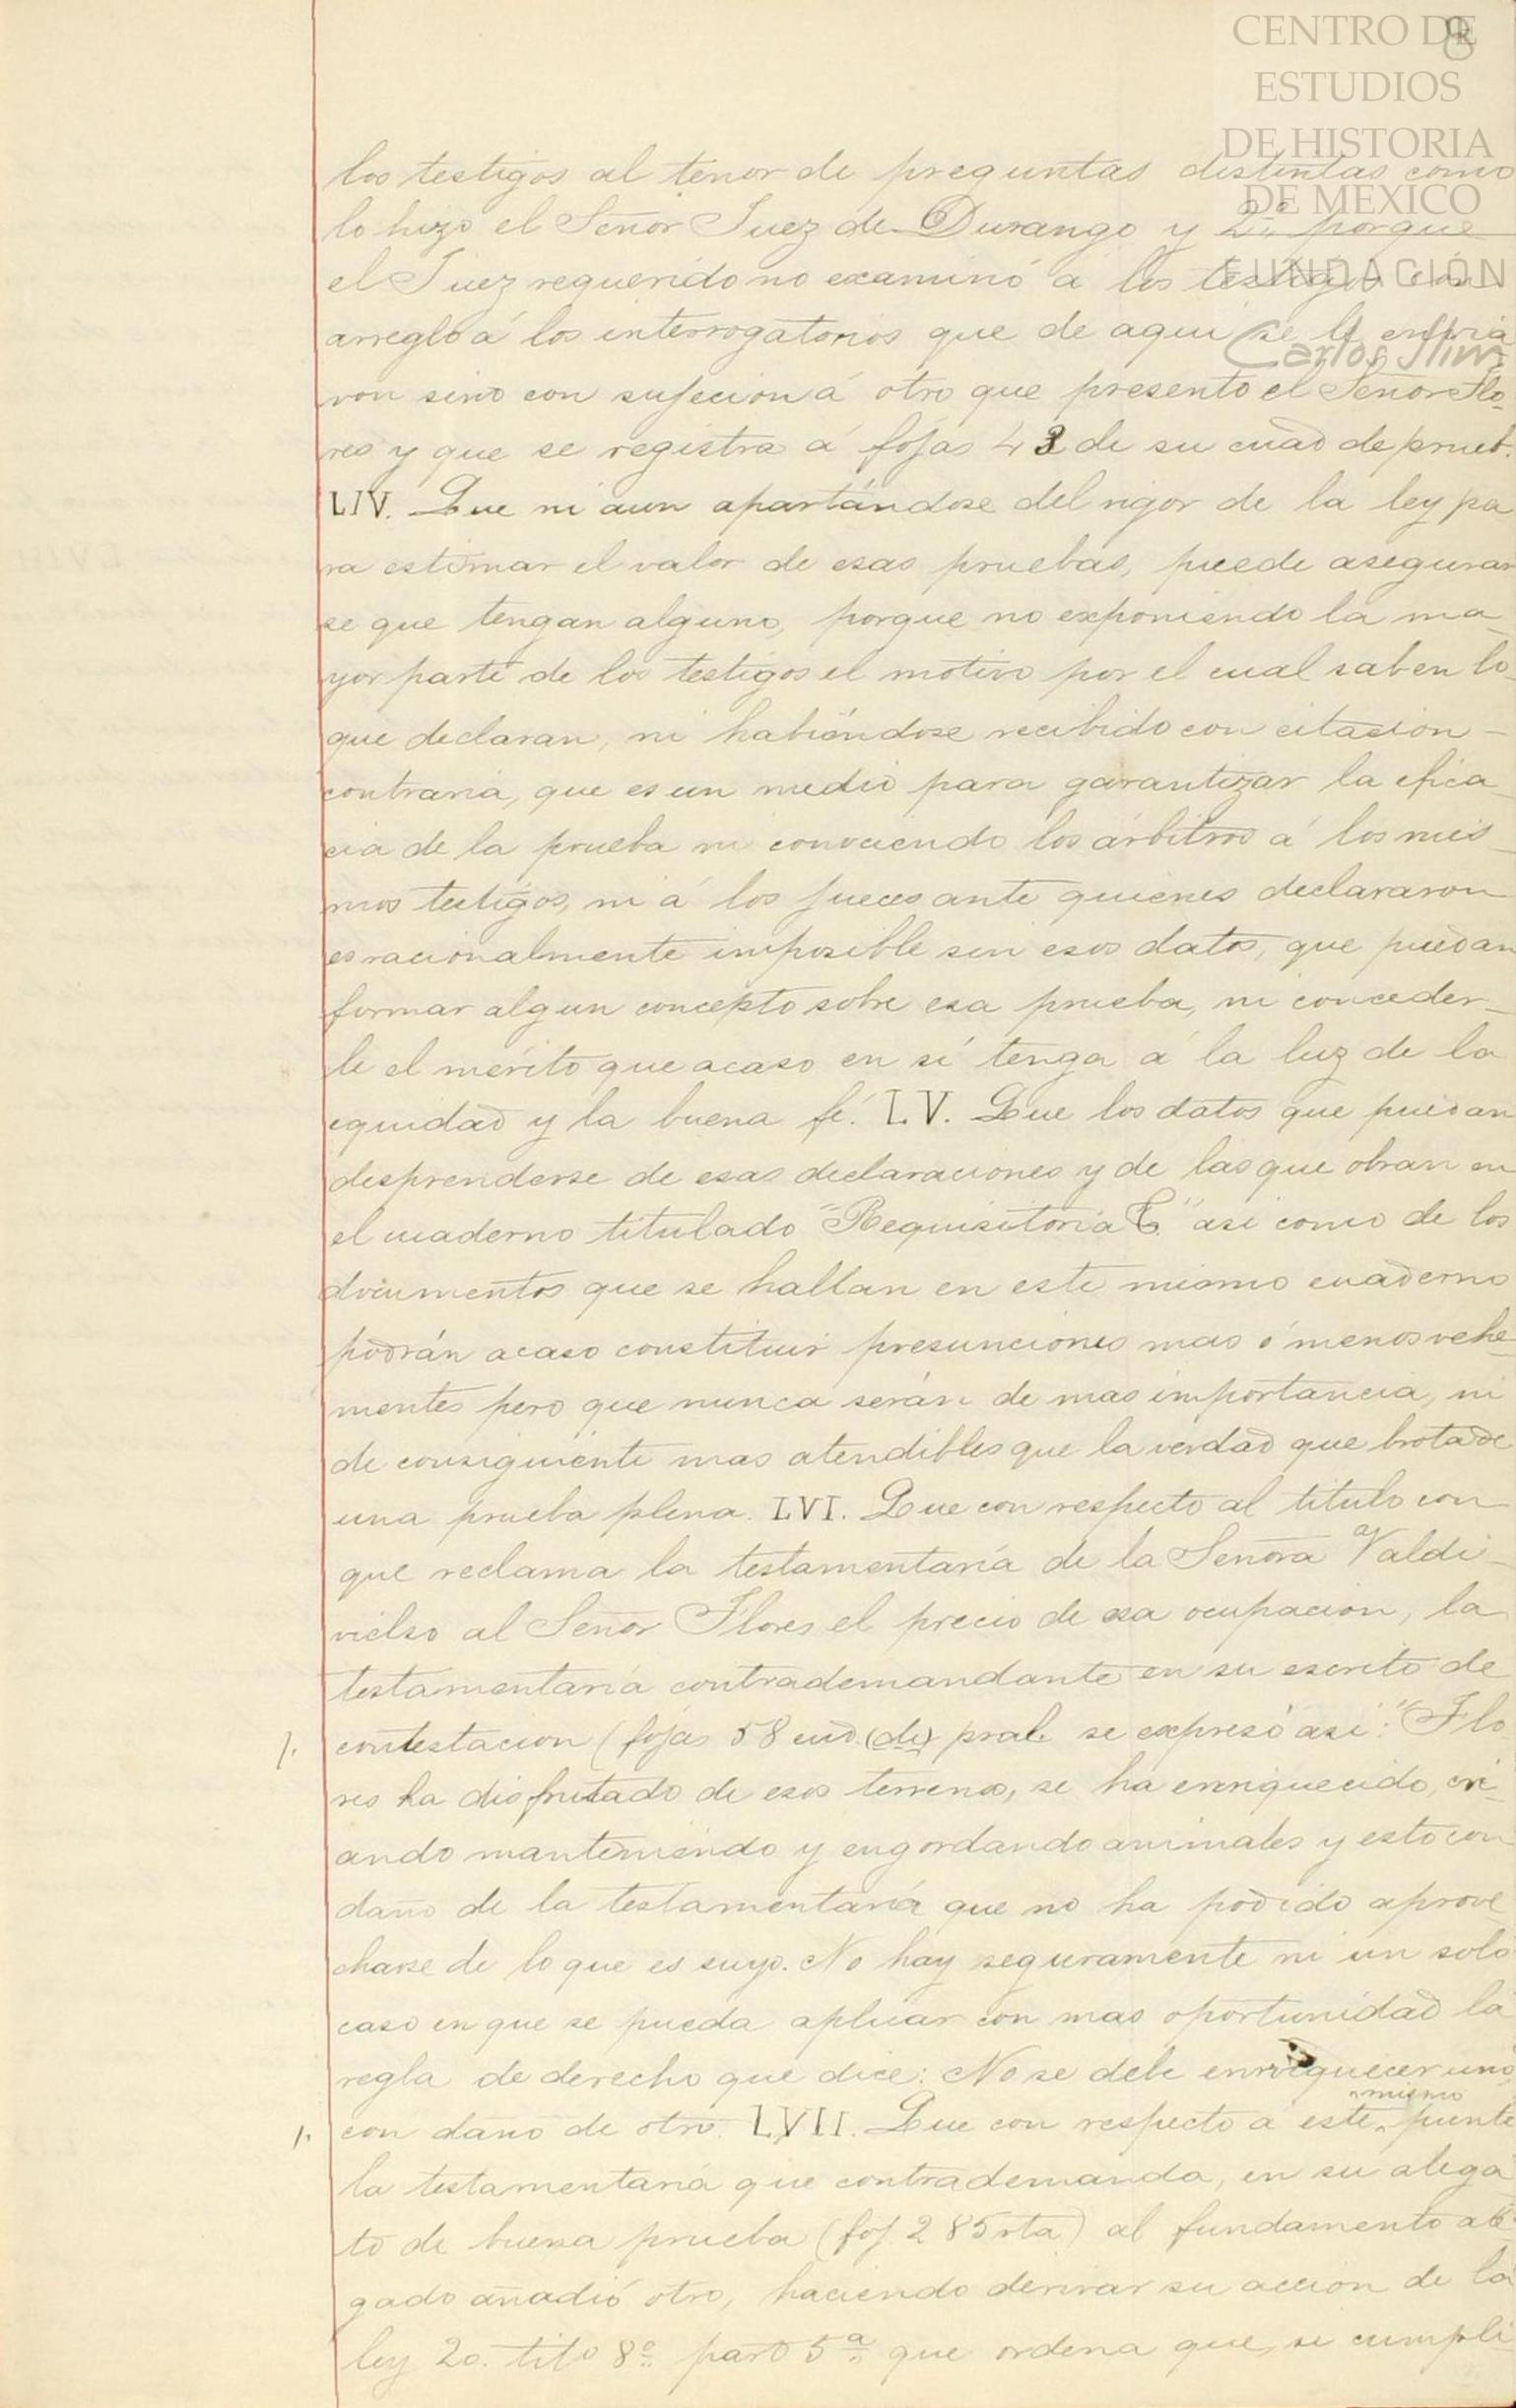 8
CENTRO DE
ESTUDIOS
DE HISTORIA
DE MEXICO
FUNDACIÓN
Carlos Slim
los testigos al tenor de preguntas distintas como
lo hizo el Señor Juez de Durango y 2º porque
el Juez requerido no examinó á los testigos con
arreglo á los interrogatorios que de aqui se le envia
ron sino con sujecion á otro que presentó el Señor Flo-
res y que se registra á fojas 43 de su cuadº de prueb.
LIV. Que ni aun apartándose del rigor de la ley pa
ra estimar el valor de esas pruebas, puede asegurar
se que tengan alguno, porque no exponiendo la ma_
yor parte de los testigos el motivo por el cual saben lo
que declaran, ni habiéndose recibido con citacion –
contraria, que es un medio para garantizar la efica_
cia de la prueba ni conociendo los árbitros á los mis_
mos testigos, ni á los jueces ante quienes declararon
es racionalmente imposible sin esos datos, que puedan
formar algun concepto sobre esa prueba, ni conceder_
le el mérito que acaso en sí tenga á la luz de la
equidad y la buena fé. LV. Que los datos que puedan
desprenderse de esas declaraciones y de las que obran en
el cuaderno titulado "Requisitoria C." asi como de los
documentos que se hallan en este mismo cuaderno
podrán acaso constituir presunciones mas ó menos vehe_
mentes pero que nunca serán de mas importancia, ni
de consiguiente mas atendibles que la verdad que brota de
una prueba plena. LVI. Que con respecto al titulo con
que reclama la testamentaría de la Señora Valdi_
vielso al Señor Flores el precio de esa ocupacion, la
testamentaría contrademandante en su escrito de
1. contestacion (fojas 58 cuad. (de) pral. se expresó asi: "Flo
res ha disfrutado de esos terrenos, se ha enriquecido, cri_
ando manteniendo y engordando animales y esto con
daño de la testamentaría que no ha podido aprove
charse de lo que es suyo. No hay seguramente ni un solo
caso en que se pueda aplicar con mas oportunidad la
regla de derecho que dice: No se debe enrriquecer uno
mismo
1. con daño de otro. LVII. Que con respecto á este punto
la testamentaría que contrademanda, en su alega
to de buena prueba (foj. 285 vta) al fundamento ale
gado añadió otro, haciendo derivar su accion de la
ley 20. titº 8º part 5ª que ordena que, si cumpli